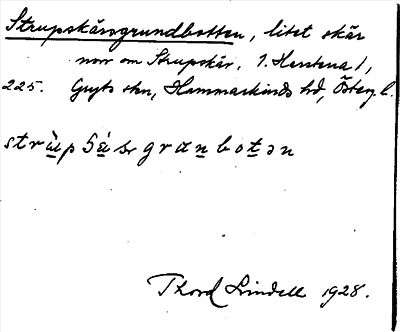 Strupskärsgrundbotten, litet skär
norr om Strupskär. 1. Harstena 1,
225. Gryts skn, Hammarkinds hd, Österg. l.
Thord Lindell 1928.